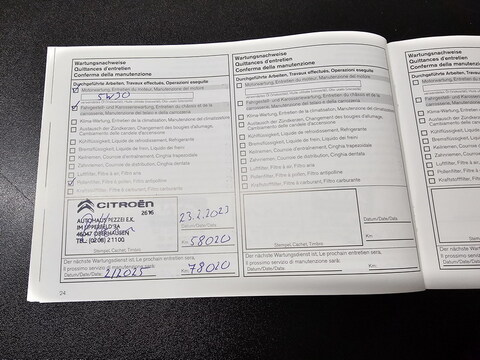 Wartungsnachweise
Quittances d'entretien
Conferma della manutenzione
Durchgeführte Arbeiten, Travaux effectués, Operazioni eseguite
Motorwartung, Entretien du moteur, Manutenzione del motore
5W30
Fahrgestell- und Karosseriewartung, Entretien du châssis et de la
carrosserie, Manutenzione del telaio e della carrozzeria
Klima-Wartung, Entretien de la climatisation, Manutenzione del climatizzatore
Austausch der Zündkerzen, Changement des bougies d'allumage,
Cambiamento delle candele d'accensione
Kühlflüssigkeit, Liquide de refroidissement, Refrigerante
Bremsflüssigkeit, Liquide de frein, Liquido dei freni
Keilriemen, Courroie d'entraînement, Cinghia trapezoidale
Zahnriemen, Courroie de distribution, Cinghia dentata
Luftfilter, Filtre à air, Filtro aria
Pollenfilter, Filtre à pollen, Filtro antipolline
Kraftstofffilter, Filtre à carburant, Filtro carburante
CITROËN
2616
AUTOHAUS PEZZEI E.K.
IM LIPPERFELD 3A
46047 OBERHAUSEN
TEL. (0208) 21100
23.2.2023
Datum/Date/Data
Km 58020
Stempel, Cachet, Timbro
Der nächste Wartungsdienst ist, Le prochain entretien sera,
Il prossimo servizio di manutenzione sarà:
Datum/Date/Data 2/2025 Km 78020
54
Wartungsnachweise
Quittances d'entretien
Conferma della manutenzione
Durchgeführte Arbeiten, Travaux effectués, Operazioni eseguite
Motorwartung, Entretien du moteur, Manutenzione del motore
Fahrgestell- und Karosseriewartung, Entretien du châssis et de la
carrosserie, Manutenzione del telaio e della carrozzeria
Klima-Wartung, Entretien de la climatisation, Manutenzione del climatizzatore
Austausch der Zündkerzen, Changement des bougies d'allumage,
Cambiamento delle candele d'accensione
Kühlflüssigkeit, Liquide de refroidissement, Refrigerante
Bremsflüssigkeit, Liquide de frein, Liquido dei freni
Keilriemen, Courroie d'entraînement, Cinghia trapezoidale
Zahnriemen, Courroie de distribution, Cinghia dentata
Luftfilter, Filtre à air, Filtro aria
Pollenfilter, Filtre à pollen, Filtro antipolline
Kraftstofffilter, Filtre à carburant, Filtro carburante
Datum/Date/Data
Km
Stempel, Cachet, Timbro
Der nächste Wartungsdienst ist, Le prochain entretien sera,
Il prossimo servizio di manutenzione sarà:
Datum/Date/Data Km